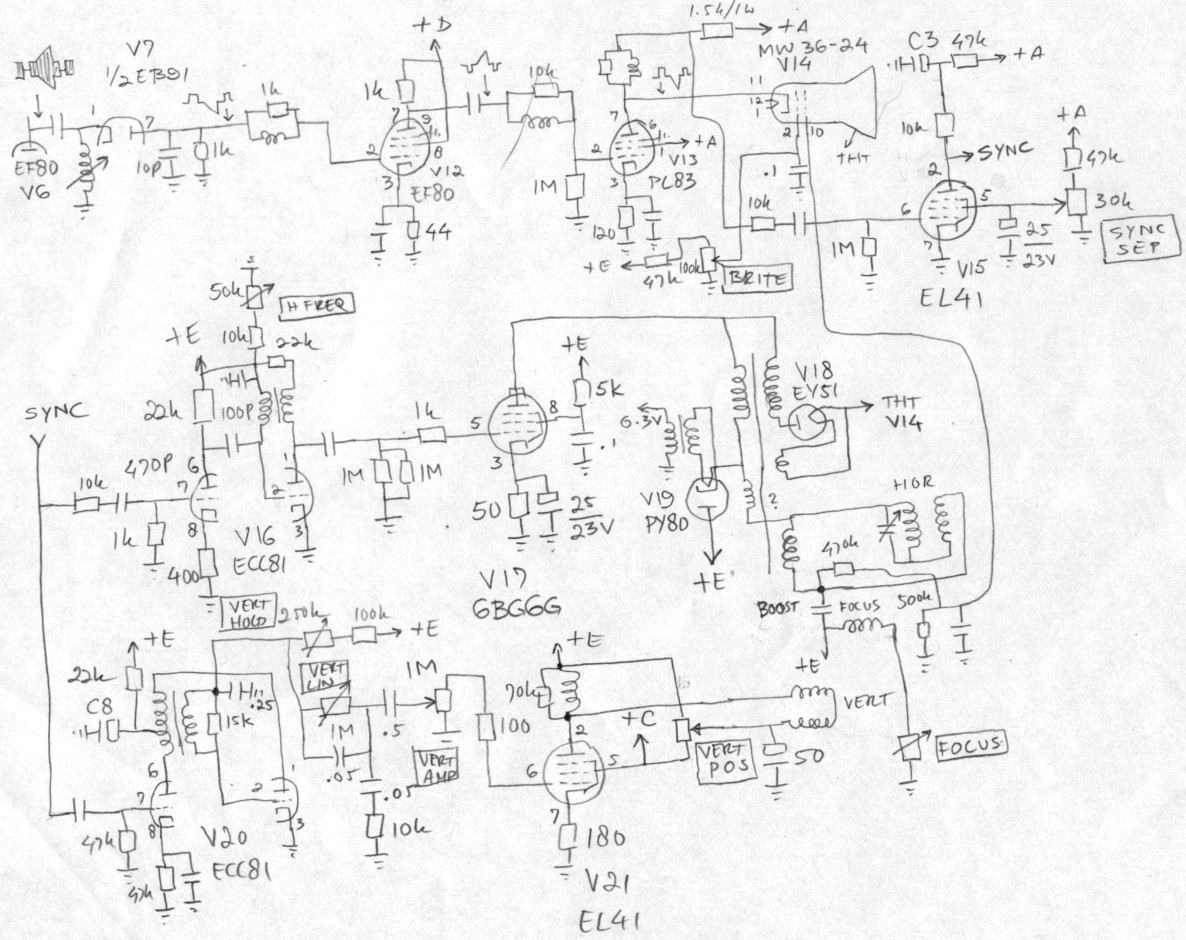 1.5k/1W
+A
+D
MW 36-24
V14
C3
47k
+A
V7
1/2 EB91
1k
10k
7
9
11
8
2
3
V12
EF80
1
7
1k
10P
1k
EF80
V6
44
1M
7
6
11
1
2
3
+A
V13
PL83
120
11
12
1
2
10
THT
.1
10k
10k
SYNC
2
5
6
7
V15
EL41
+A
47k
30k
25
23V
SYNC
SEP
1M
+E
47k
100k
BRITE
50k
H FREQ
10k
22k
+E
22k
100P
SYNC
470P
6
7
8
10k
1k
400
V16
ECC81
1
2
3
1k
1M
1M
5
3
8
+E
15k
.1
50
25
23V
V17
6BG6G
6.3V
V19
PY80
+E
V18
EY51
THT
V14
2
HOR
470k
500k
BOOST
FOCUS
+E
FOCUS
VERT
HOLD
250k
100k
+E
+E
22k
C8
.25
15k
VERT
LIN
1M
.05
.5
.05
10k
1M
VERT
AMP
100
6
7
8
47k
47k
V20
ECC81
1
2
3
+E
70k
+C
2
5
6
7
180
V21
EL41
VERT
POS
VERT
50